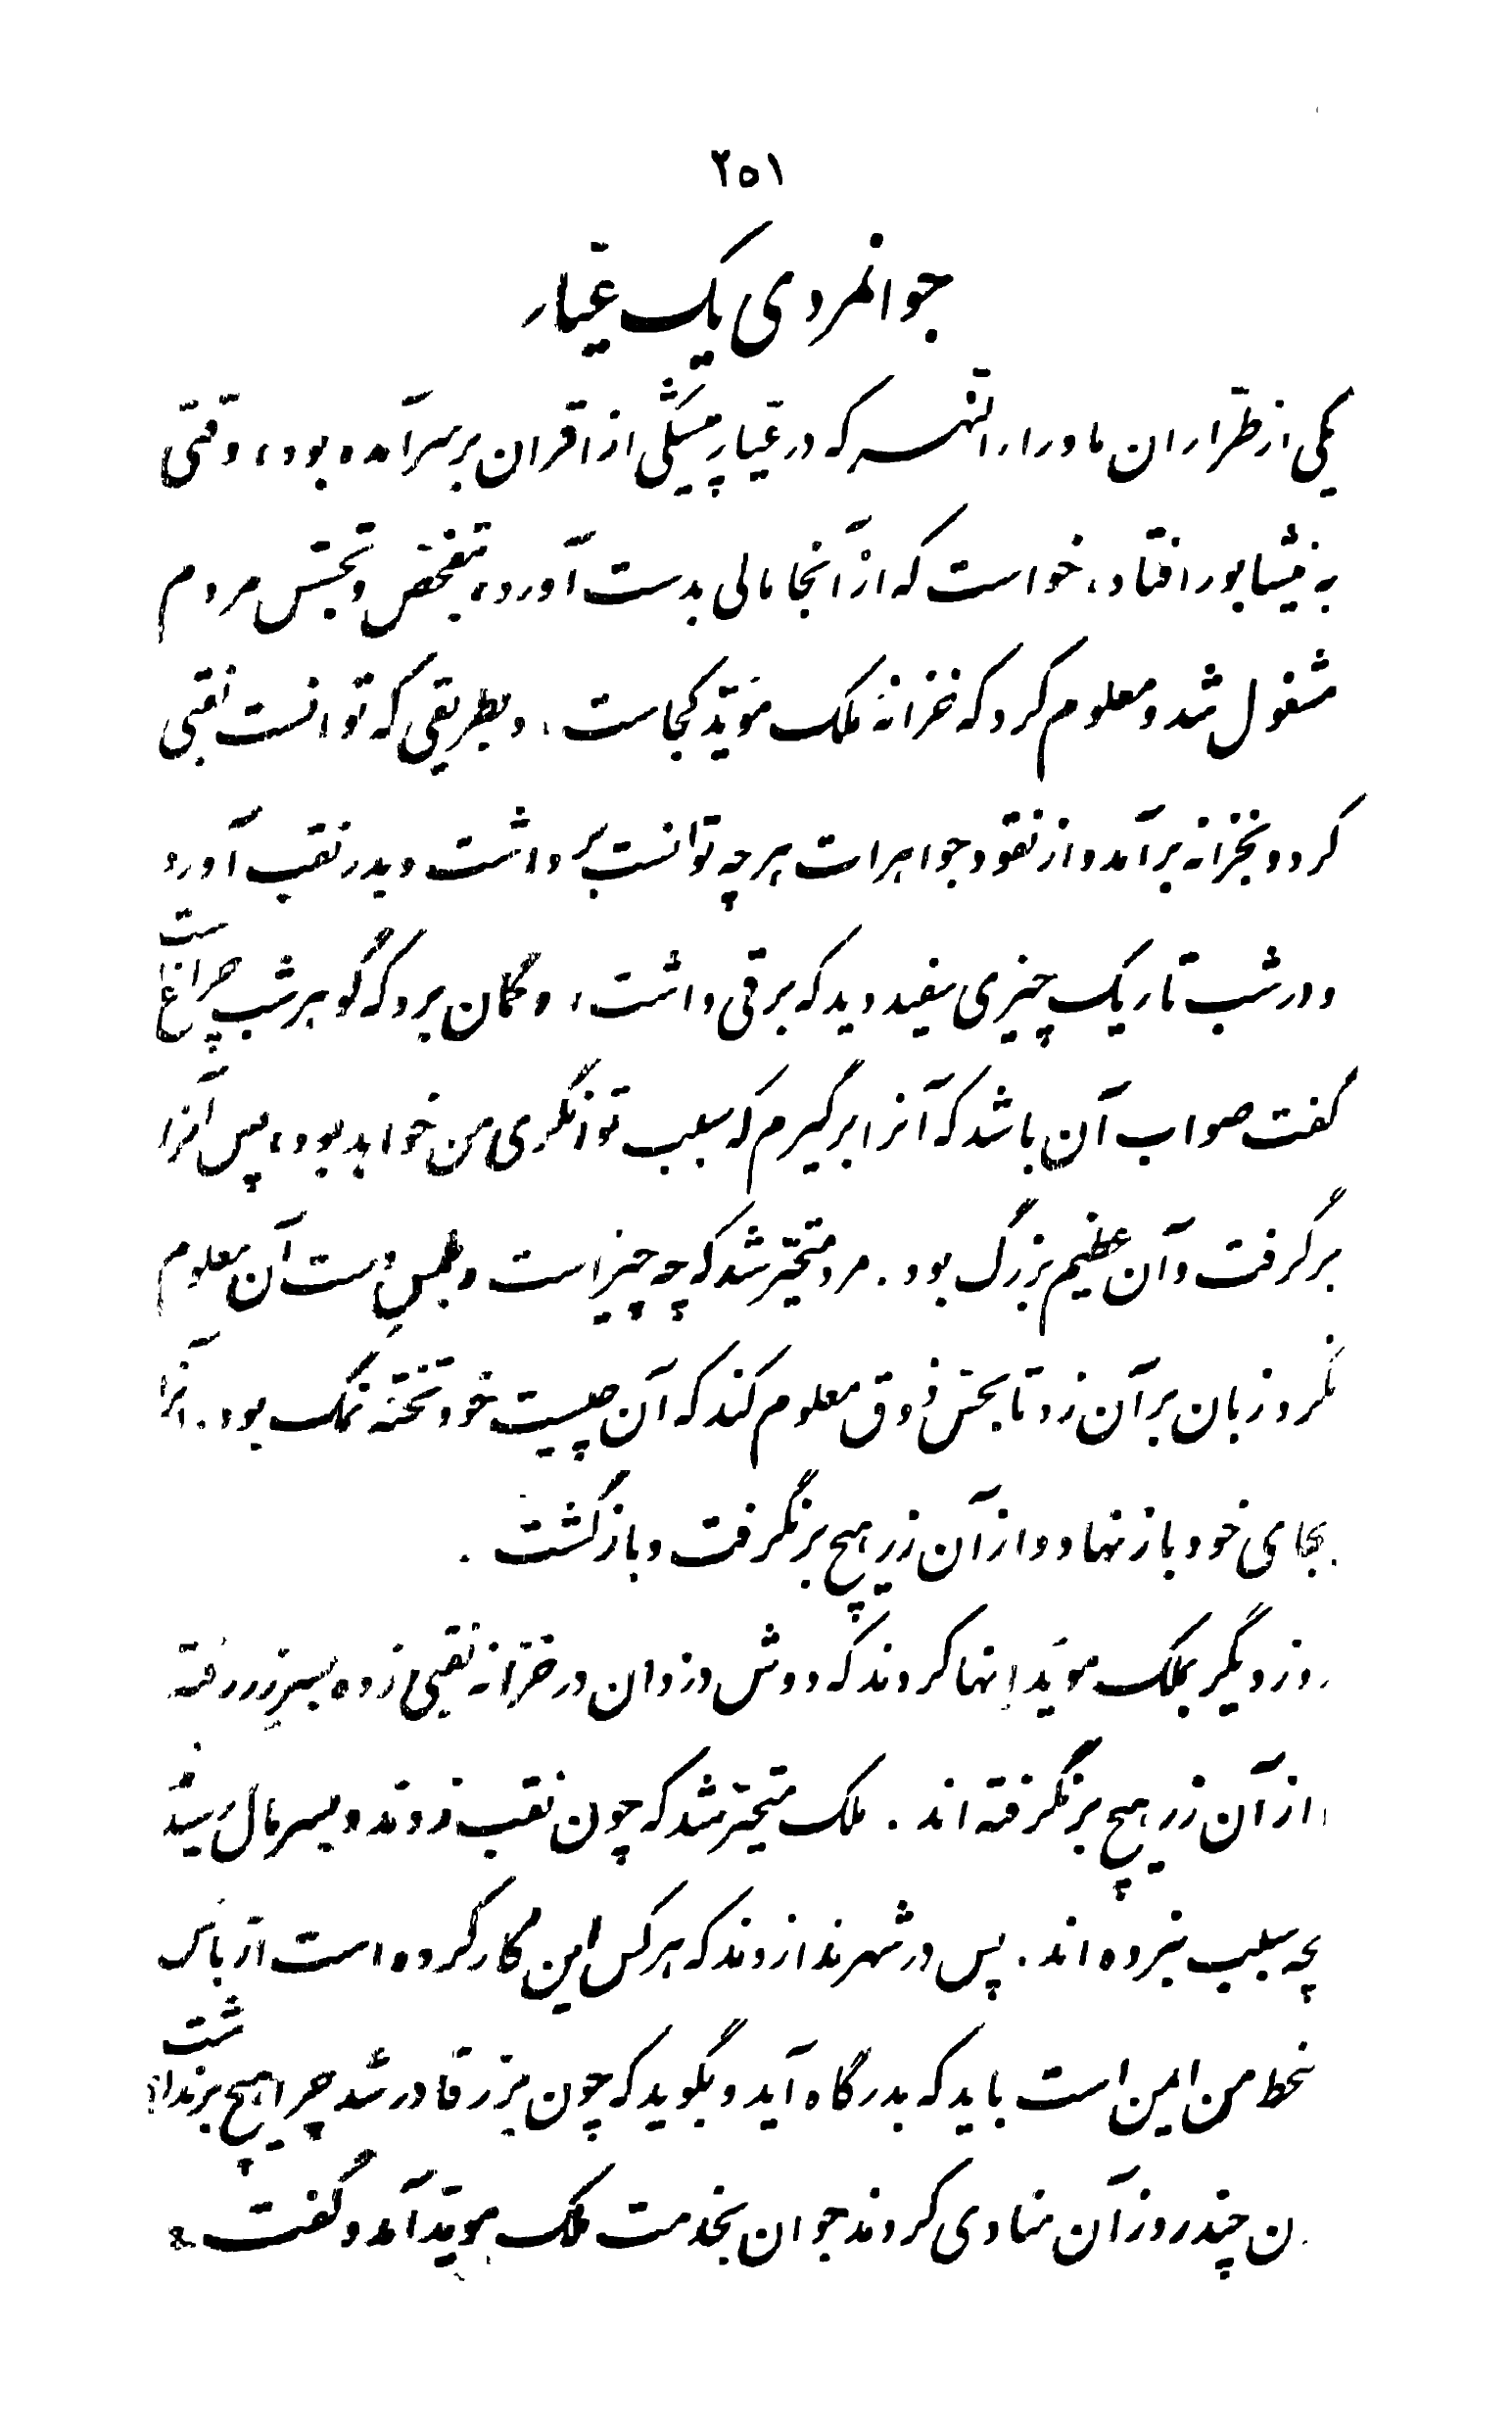 ۲۵۱
جوانمردی یک عیّار
یکی از طرّاران ماوراءالنّهر که در عیّارپیشگی از اقران بر سر آمده بود، وقتی
به نیشابور افتاد، خواست که از آنجا مالی بدست آورد، بتفحّص و تجسّس مردم
مشغول شد و معلوم کرد که خزانهٔ ملک مؤیّد کجاست، و بطریقی که توانست نقبی
کرد و بخزانه برآمد و از نقود و جواهرات هرچه توانست برداشت و بدر نقب آورد
و در شب تاریک چیزی سفید دید که برقی داشت، و گمان برد که گوهر شب چراغ است
گفت صواب آن باشد که آنرا برگیرم که سبب توانگری من خواهد بود، پس آنرا
برگرفت و آن عظیم بزرگ بود. مرد متحیّر شد که چه چیز است و بلمس دست آن معلوم
نکرد زبان بر آن زد تا بحسّ ذوق معلوم کند که آن چیست خود تختهٔ نمک بود. آنرا
بجای خود باز نهاد و از آن زر هیچ برنگرفت و بازگشت.
روز دیگر بملک مؤید إنها کردند که دوش دزدان در خزانه نقبی زده بسر زر رفته
از آن زر هیچ برنگرفته‌اند. ملک متحیّر شد که چون نقب زدند و بسر مال رسیدند
بچه سبب نبرده‌اند. پس در شهر ندا زدند که هر کس این کار کرده است از بأس
سخط من ایمن است باید که بدرگاه آید و بگوید که چون بر زر قادر شد چرا هیچ برنداشت؟
چند روز آن منادی کردند جوان بخدمت ملک مویّد آمد و گفت